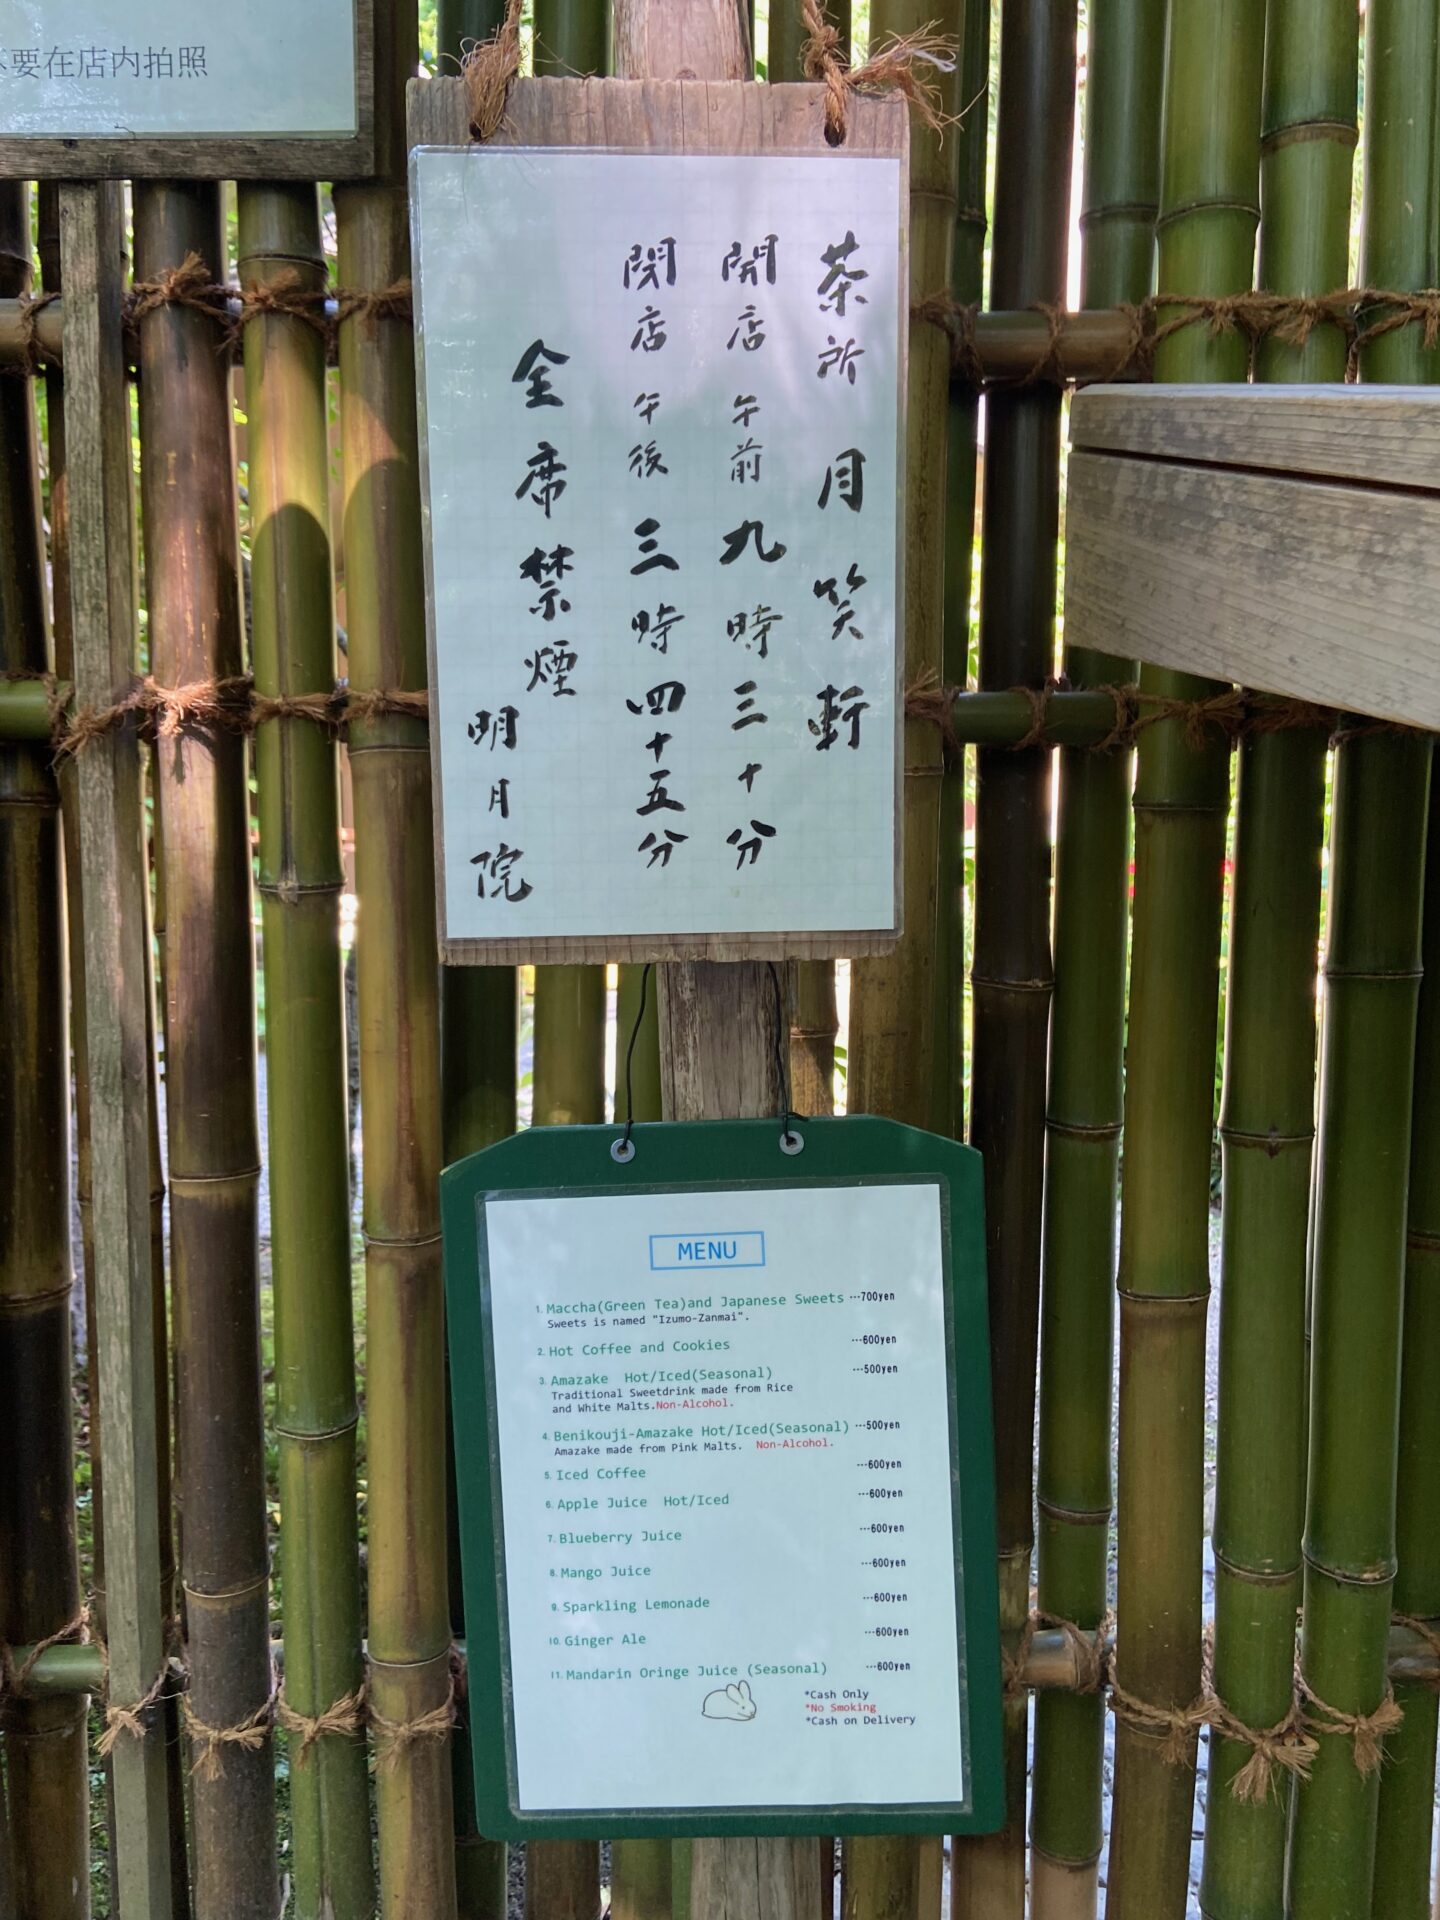 不要在店内拍照
茶所 月笑軒
開店 午前 九時三十分
閉店 午後 三時四十五分
全席禁煙
明月院
MENU
1. Maccha(Green Tea)and Japanese Sweets …700yen
Sweets is named "Izumo-Zanmai".
2. Hot Coffee and Cookies …600yen
3. Amazake Hot/Iced(Seasonal) …500yen
Traditional Sweetdrink made from Rice
and White Malts.Non-Alcohol.
4. Benikouji-Amazake Hot/Iced(Seasonal) …500yen
Amazake made from Pink Malts. Non-Alcohol.
5. Iced Coffee …600yen
6. Apple Juice Hot/Iced …600yen
7. Blueberry Juice …600yen
8. Mango Juice …600yen
9. Sparkling Lemonade …600yen
10. Ginger Ale …600yen
11. Mandarin Oringe Juice (Seasonal) …600yen
*Cash Only
*No Smoking
*Cash on Delivery